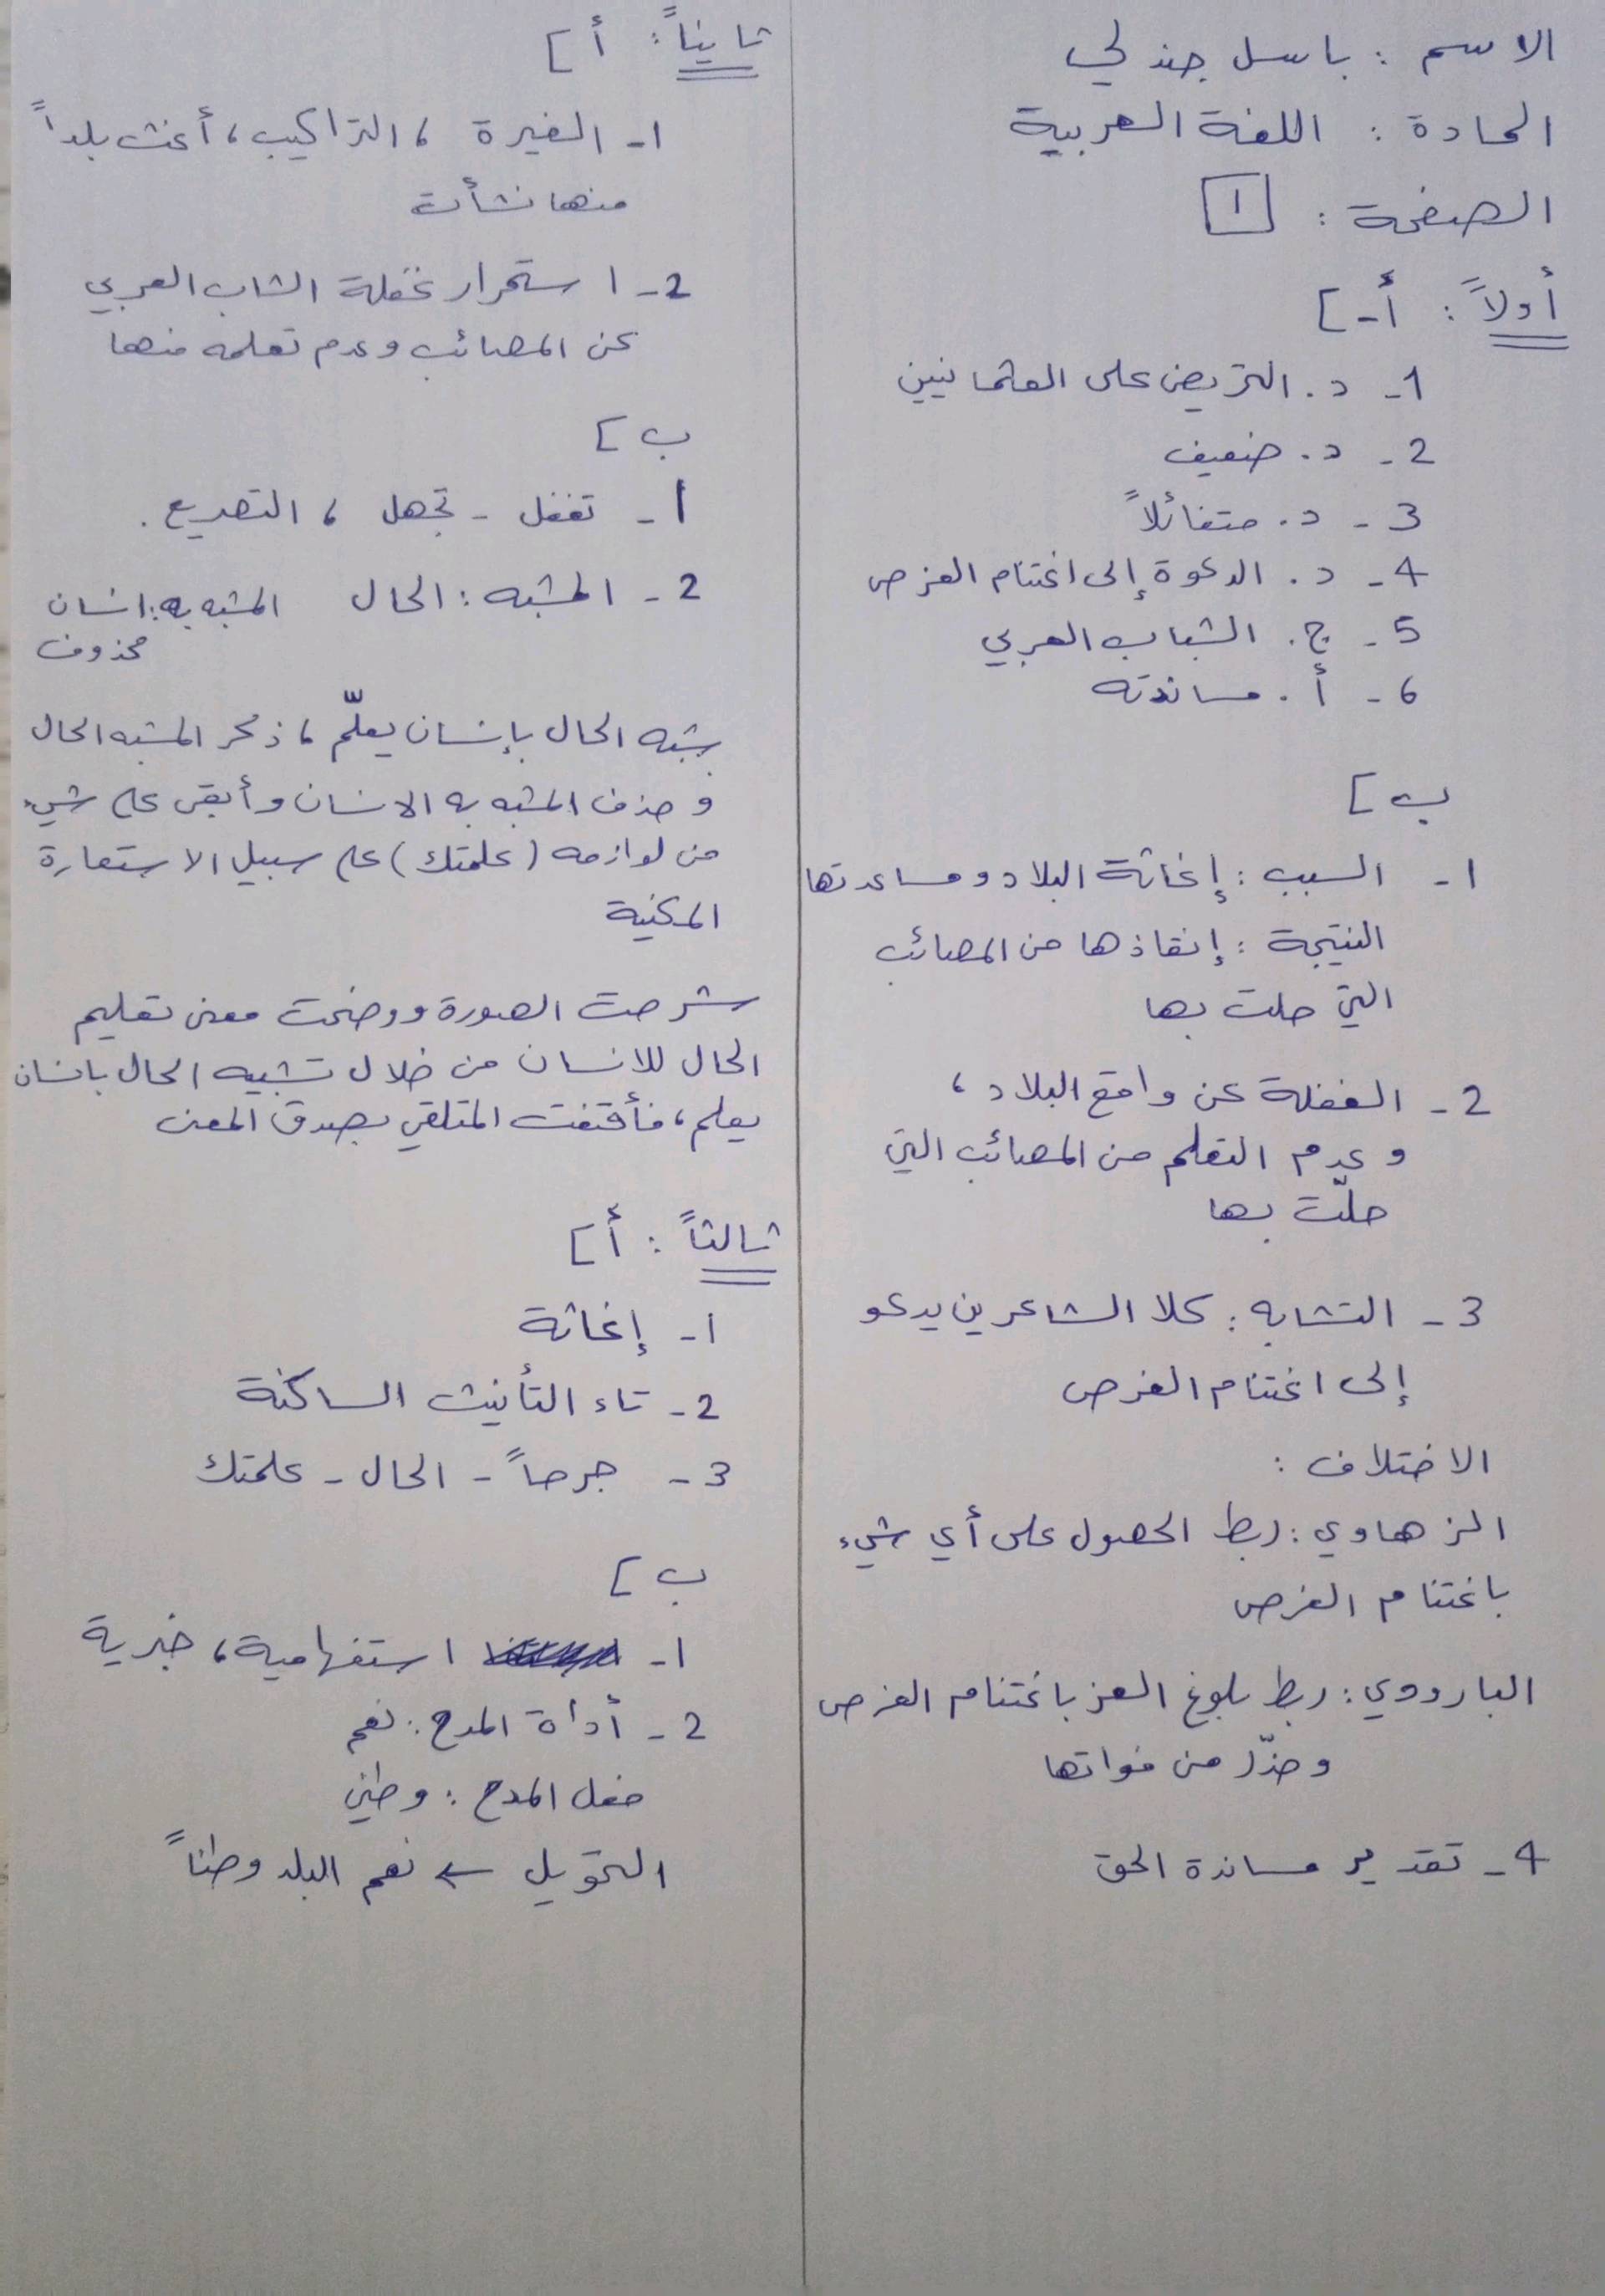 الاسم : باسل جندلي
المادة : اللغة العربية
الصفحة : 1
أولاً : أ-]
1- د. التحريض على العثمانيين
2- د. ضعيف
3- د. متفائلاً
4- د. الدعوة إلى اغتنام الفرص
5- ج. الشباب العربي
6- أ. مساندته
ب]
1- السبب : إغاثة البلاد ومساعدتها
النتيجة : إنقاذها من المصائب
التي حلت بها
2- الغفلة عن واقع البلاد ،
وعدم التعلم من المصائب التي
حلّت بها
3- التشابه : كلا الشاعرين يدعو
إلى اغتنام الفرص
الاختلاف :
الزهاوي : ربط الحصول على أي شيء
باغتنام الفرص
البارودي : ربط بلوغ العز باغتنام الفرص
وحذّر من فواتها
4- تقدير مساندة الحق
ثانياً : أ]
1- الغيرة ، التراكيب ، أغث بلداً
منها نشأت
2- استمرار غفلة الشاب العربي
عن المصائب وعدم تعلمه منها
ب]
1- تغفل - تجهل ، التصريع .
2- المشبه : الحال المشبه به : إنسان
محذوف
شبه الحال بإنسان يعلّم ، ذكر المشبه الحال
وحذف المشبه به الانسان وأبقى على شيء
من لوازمه (علمتك) على سبيل الاستعارة
المكنية
شرحت الصورة ووضحت معنى تعليم
الحال للانسان من خلال تشبيه الحال بانسان
يعلم ، فأقنعت المتلقي بصدق المعنى
ثالثاً : أ]
1- إغاثة
2- تاء التأنيث الساكنة
3- جرحاً - الحال - علمتك
ب]
1- استفهامية ، خبرية
2- أداة المدح : نعم
فعل المدح : وطني
التحويل ← نعم البلد وطناً